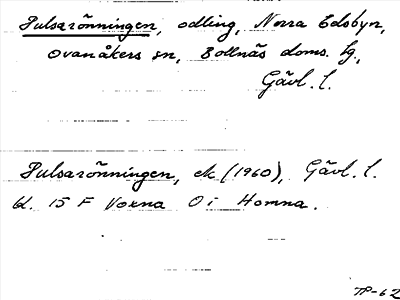 Pulsarönningen, odling, Norra Edsbyn,
Ovanåkers sn, Bollnäs doms. hg,
Gävl. l.
Pulsarönningen, ek (1960), Gävl. l.
bl. 15 F Voxna O i Homna.
TP-62